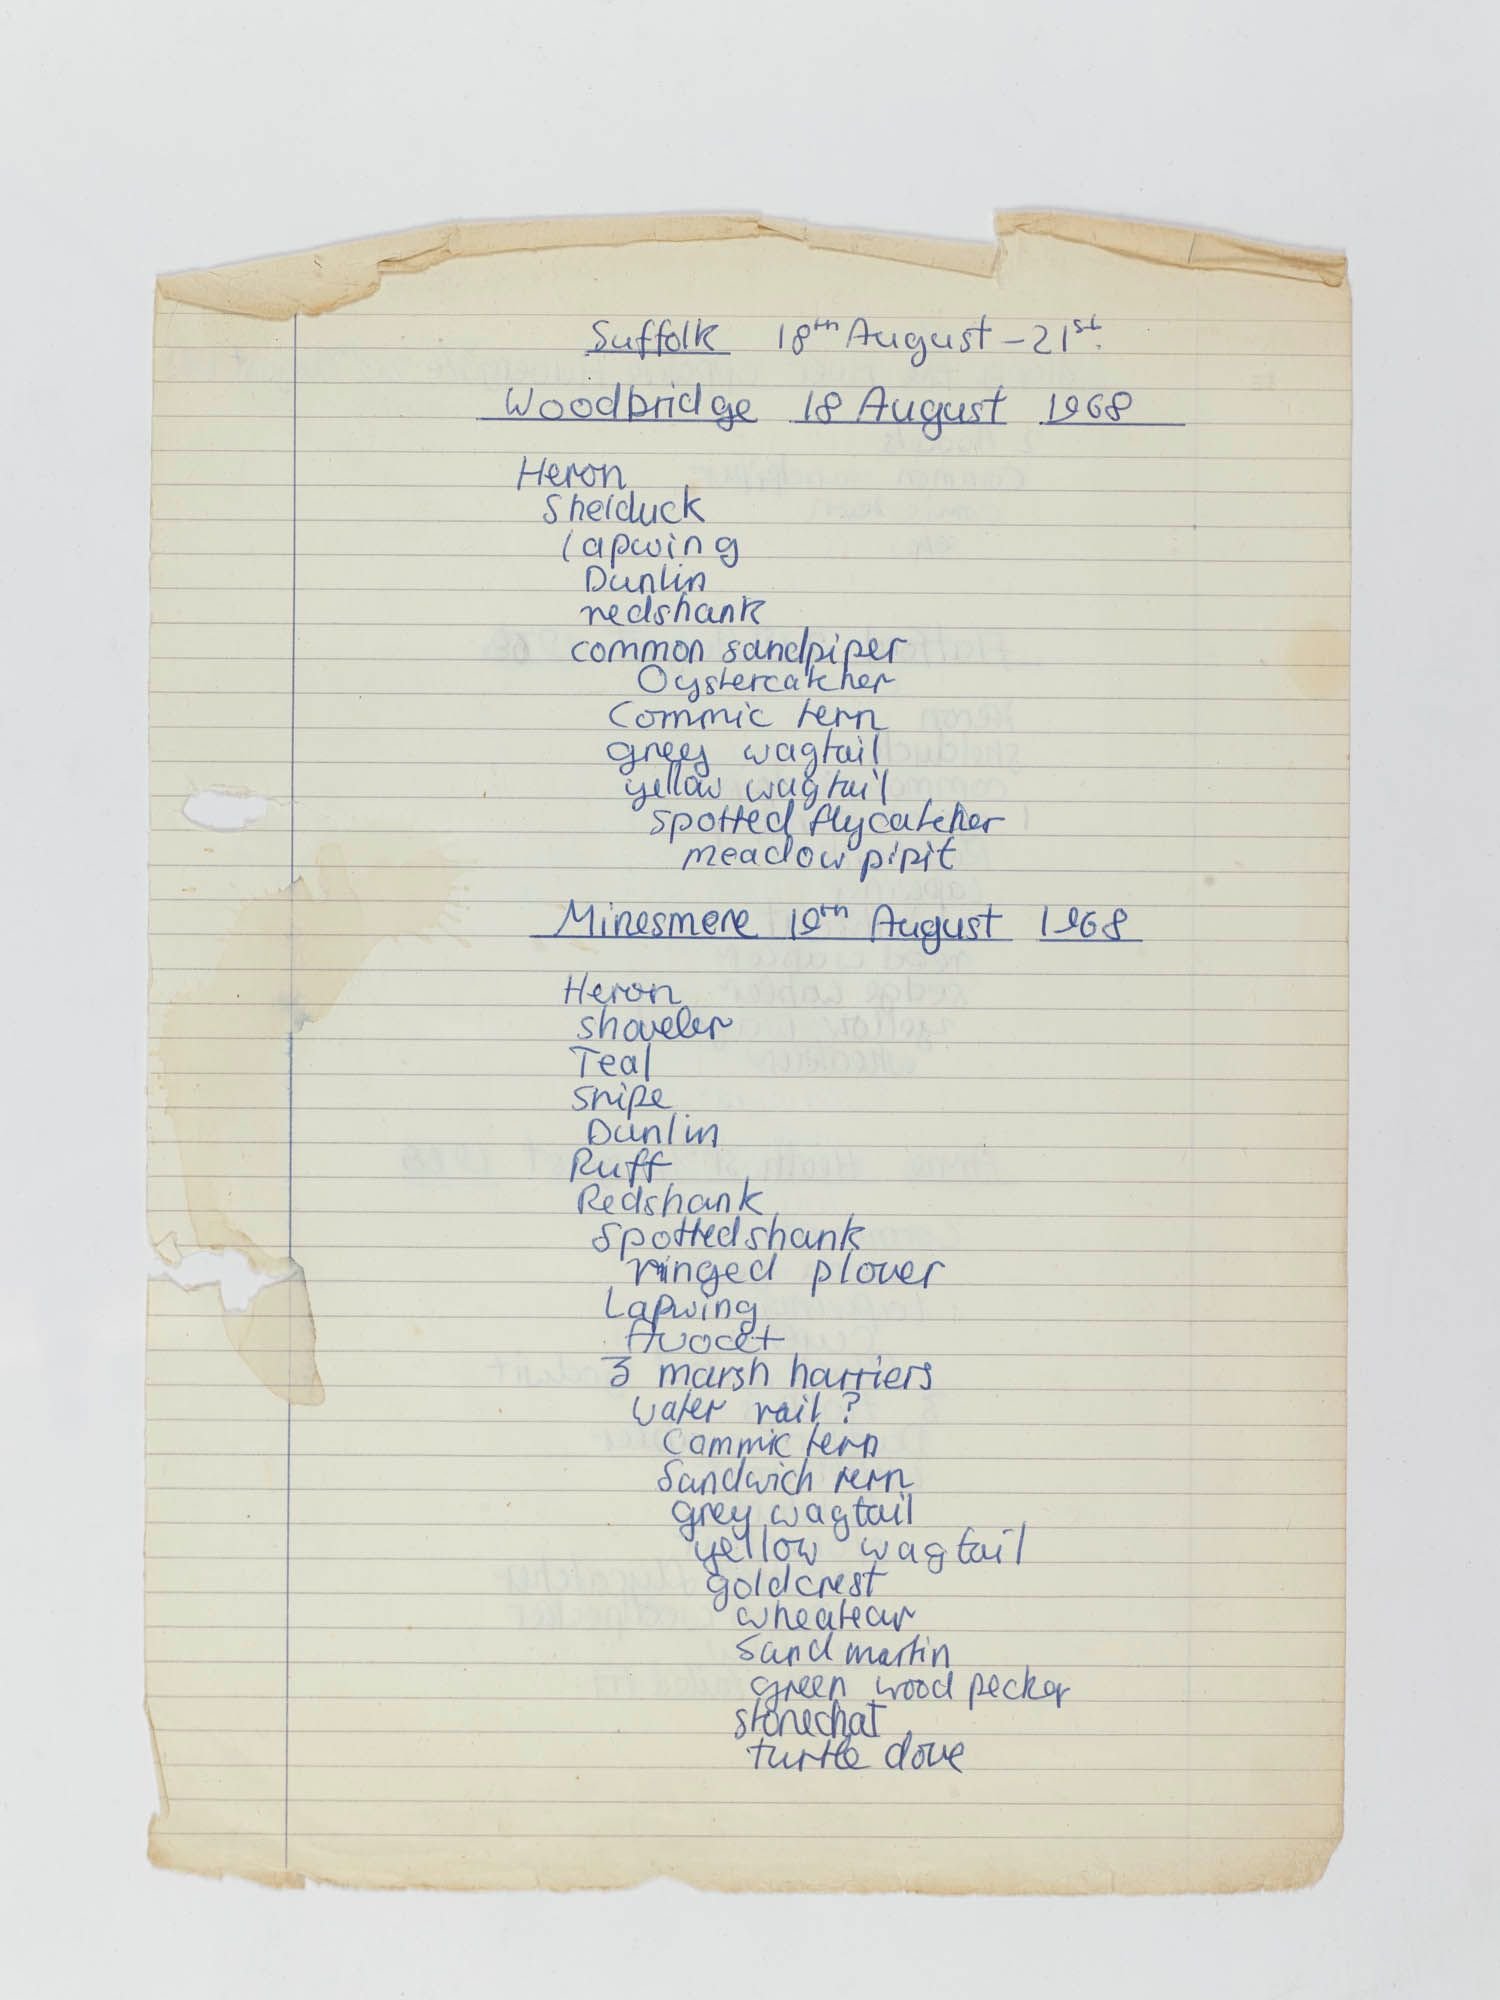 Suffolk 18th August - 21st.
Woodbridge 18 August 1968
Heron
Shelduck
lapwing
Dunlin
redshank
common sandpiper
Oystercatcher
Commic tern
grey wagtail
yellow wagtail
spotted flycatcher
meadow pipit
Minesmere 19th August 1968
Heron
shoveler
Teal
snipe
Dunlin
Ruff
Redshank
Spottedshank
ringed plover
Lapwing
Avocet
3 marsh harriers
water rail?
Commic tern
Sandwich tern
grey wagtail
yellow wagtail
goldcrest
wheatear
Sand martin
green woodpecker
stonechat
turtle dove